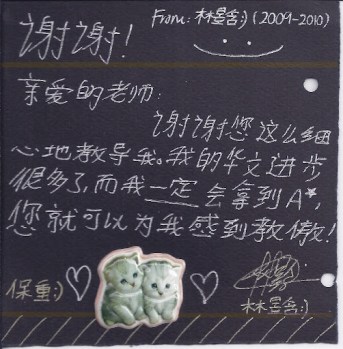 谢谢!
From: 林昙含:) (2009-2010)
亲爱的老师:
谢谢您这么细
心地教导我。我的华文进步
很多了,而我一定会拿到A*,
您就可以为我感到教傲!
保重:)
林昙含:)